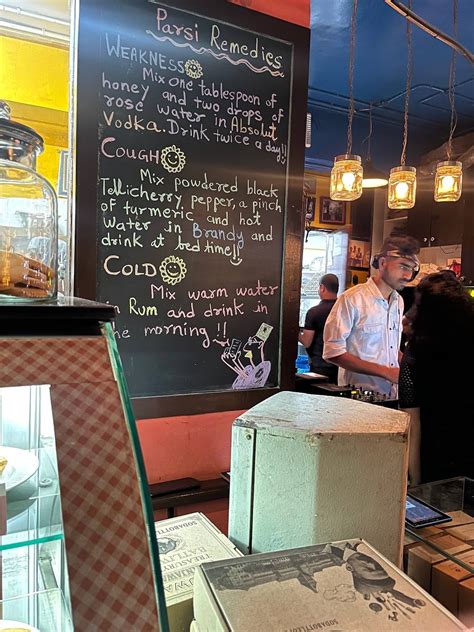 Parsi Remedies
WEAKNESS
Mix one tablespoon of
honey and two drops of
rose water in Absolut
Vodka. Drink twice a day!!
COUGH
Mix powdered black
Tellicherry, pepper, a pinch
of turmeric and hot
water in Brandy and
drink at bed time!!
COLD
Mix warm water
in Rum and drink in
the morning!!
SODABOTTLE
TREASURY
BATLI